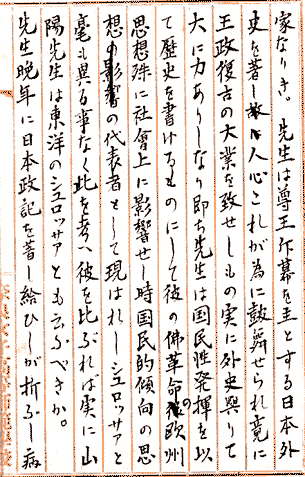 家なりき。先生は尊王斥幕を主とする日本外
史を著し人心これが為に鼓舞せられ竟に
王政復古の大業を致せしもの実に外史與りて
大に力ありしなり即ち先生は国民性発揮を以
て歴史を書けるものにして彼の佛革命後の欧州
思想殊に社會上に影響せし時国民的傾向の思
想の影響の代表者として現はれしシュロッサアと
毫も異る事なく此を考へ彼を比ぶれば実に山
陽先生は東洋のシュロッサアとも云ふべきか。
先生晩年に日本政記を著し給ひしが折ふし病